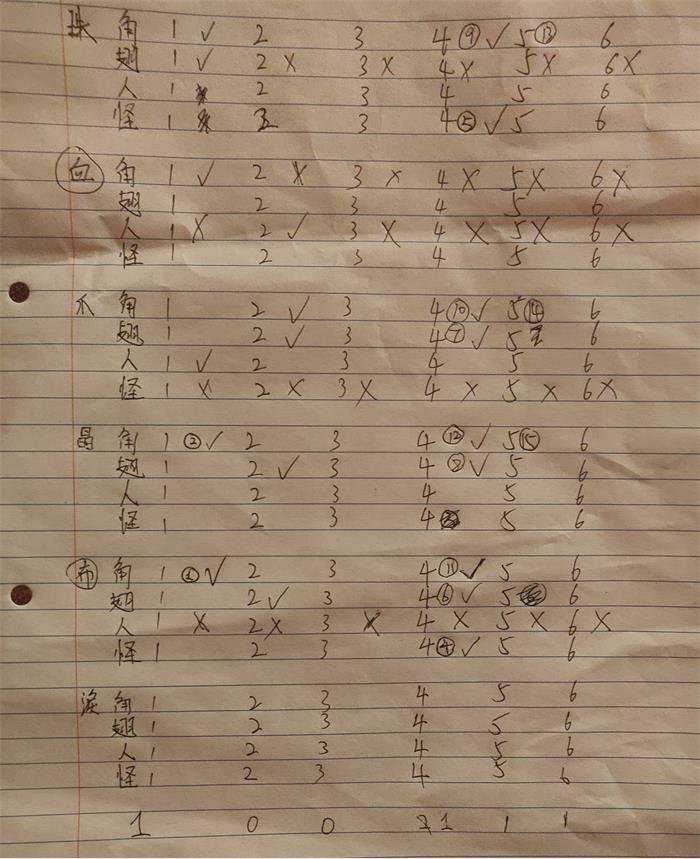 珠 角 1 ✓ 2 3 4 ⑨ ✓ 5 ⑬ 6
翅 1 ✓ 2 X 3 X 4 X 5 X 6 X
人 1 2 3 4 5 6
怪 1 2 3 4 ⑤ ✓ 5 6
向 角 1 ✓ 2 X 3 X 4 X 5 X 6 X
翅 1 2 3 4 5 6
人 1 X 2 ✓ 3 X 4 X 5 X 6 X
怪 1 2 3 4 5 6
爪 角 1 2 ✓ 3 4 ⑩ ✓ 5 ⑭ 6
翅 1 2 ✓ 3 4 ⑦ ✓ 5 6
人 1 ✓ 2 3 4 5 6
怪 1 X 2 X 3 X 4 X 5 X 6 X
晶 角 1 ② ✓ 2 3 4 ⑫ ✓ 5 ⑮ 6
翅 1 2 ✓ 3 4 ⑧ ✓ 5 6
人 1 2 3 4 5 6
怪 1 2 3 4 5 6
布 角 1 ① ✓ 2 3 4 ⑪ ✓ 5 6
翅 1 2 ✓ 3 4 ⑥ ✓ 5 6
人 1 X 2 X 3 X 4 X 5 X 6 X
怪 1 2 3 4 ④ ✓ 5 6
泪 角 1 2 3 4 5 6
翅 1 2 3 4 5 6
人 1 2 3 4 5 6
怪 1 2 3 4 5 6
1 0 0 1 1 1